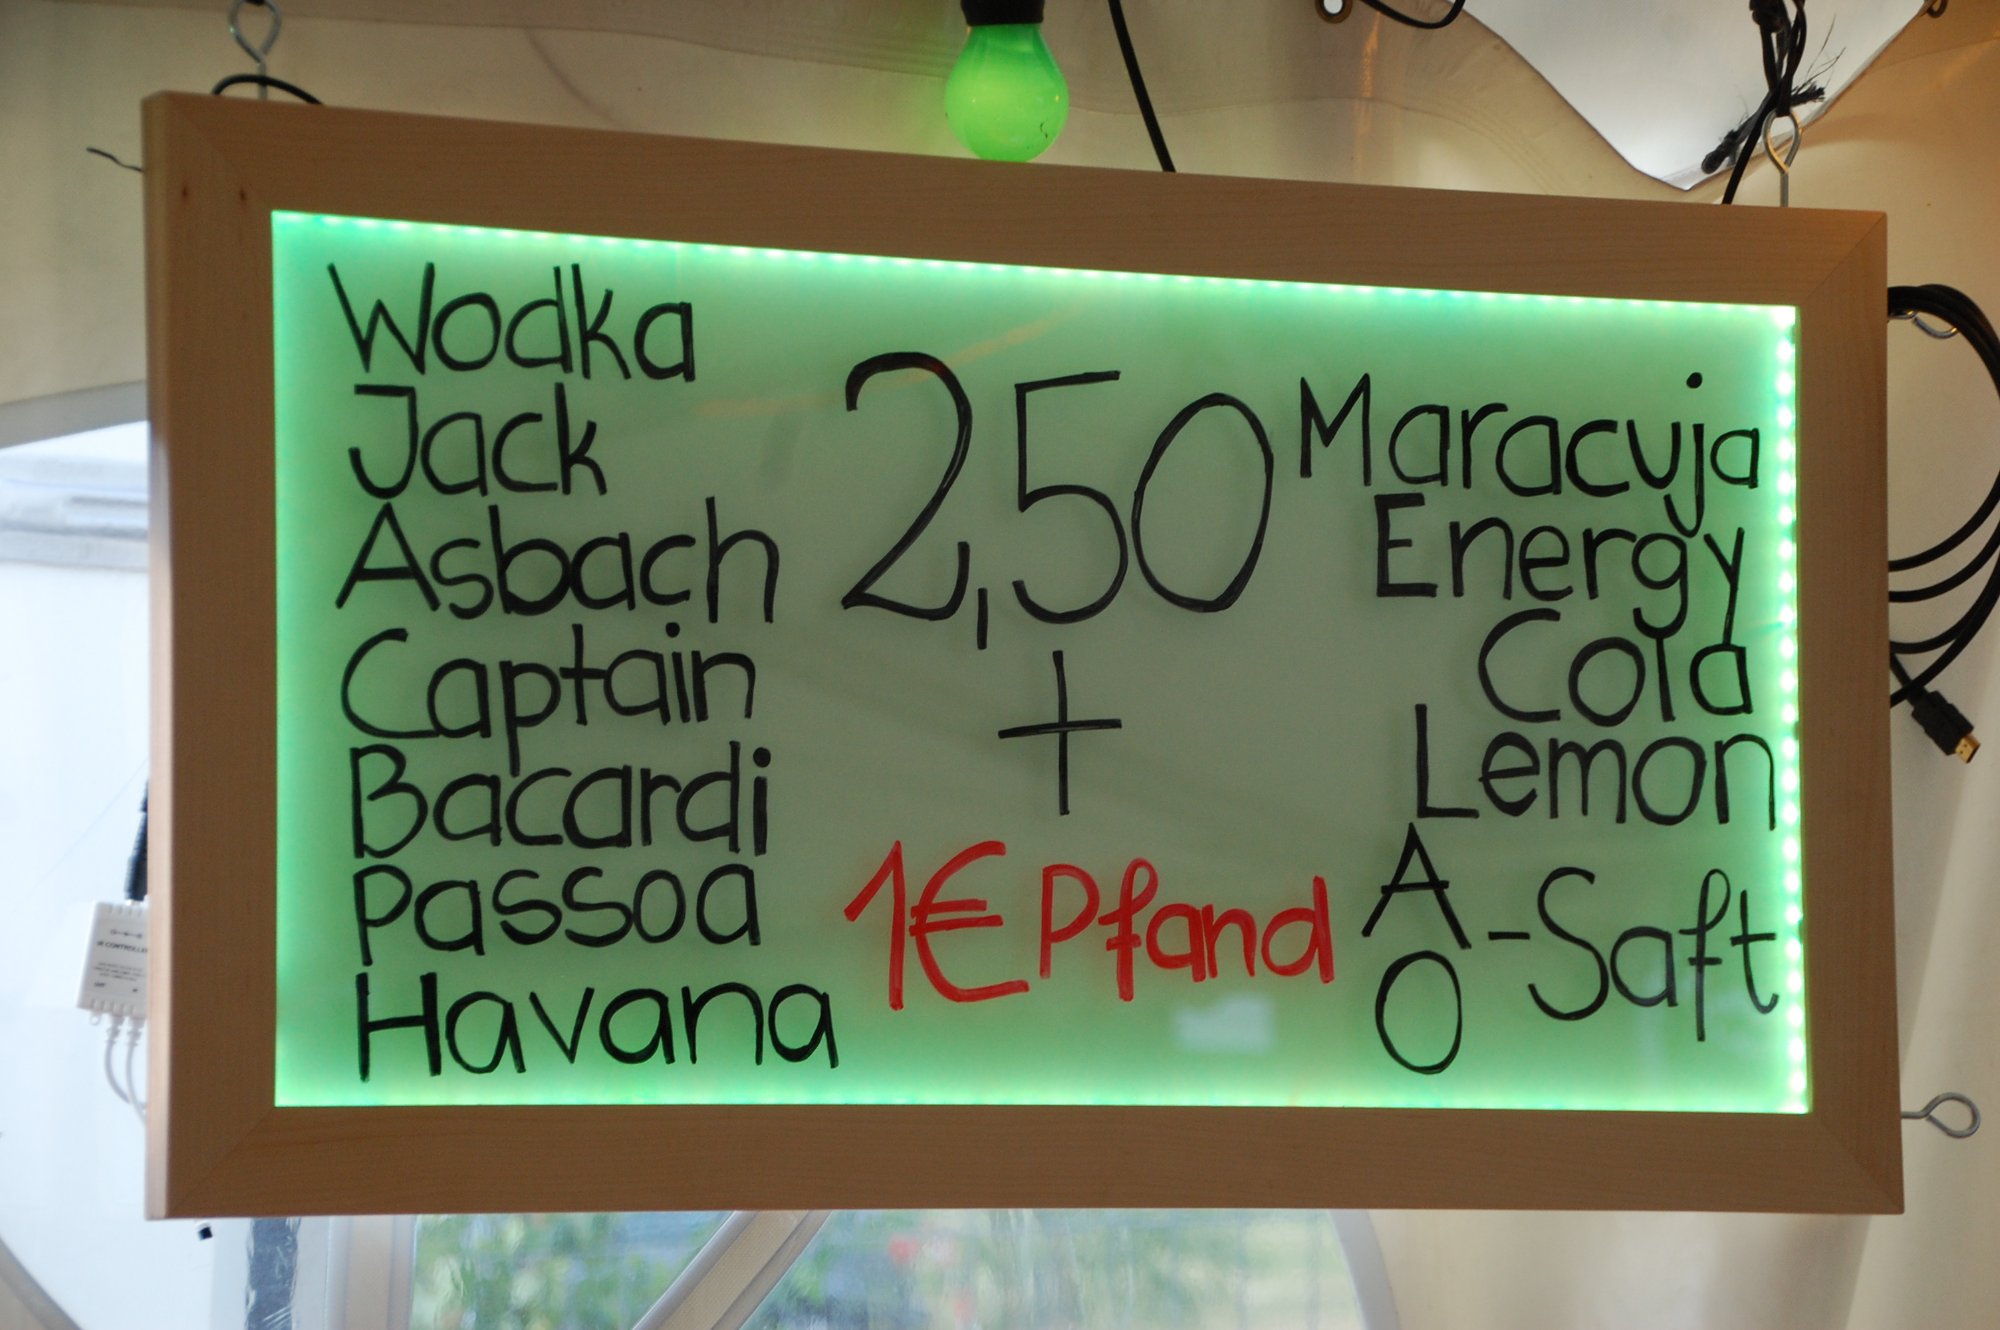 Wodka
Jack
Asbach
Captain
Bacardi
Passoa
Havana
2,50
+
1€ Pfand
Maracuja
Energy
Cola
Lemon
A
O -Saft